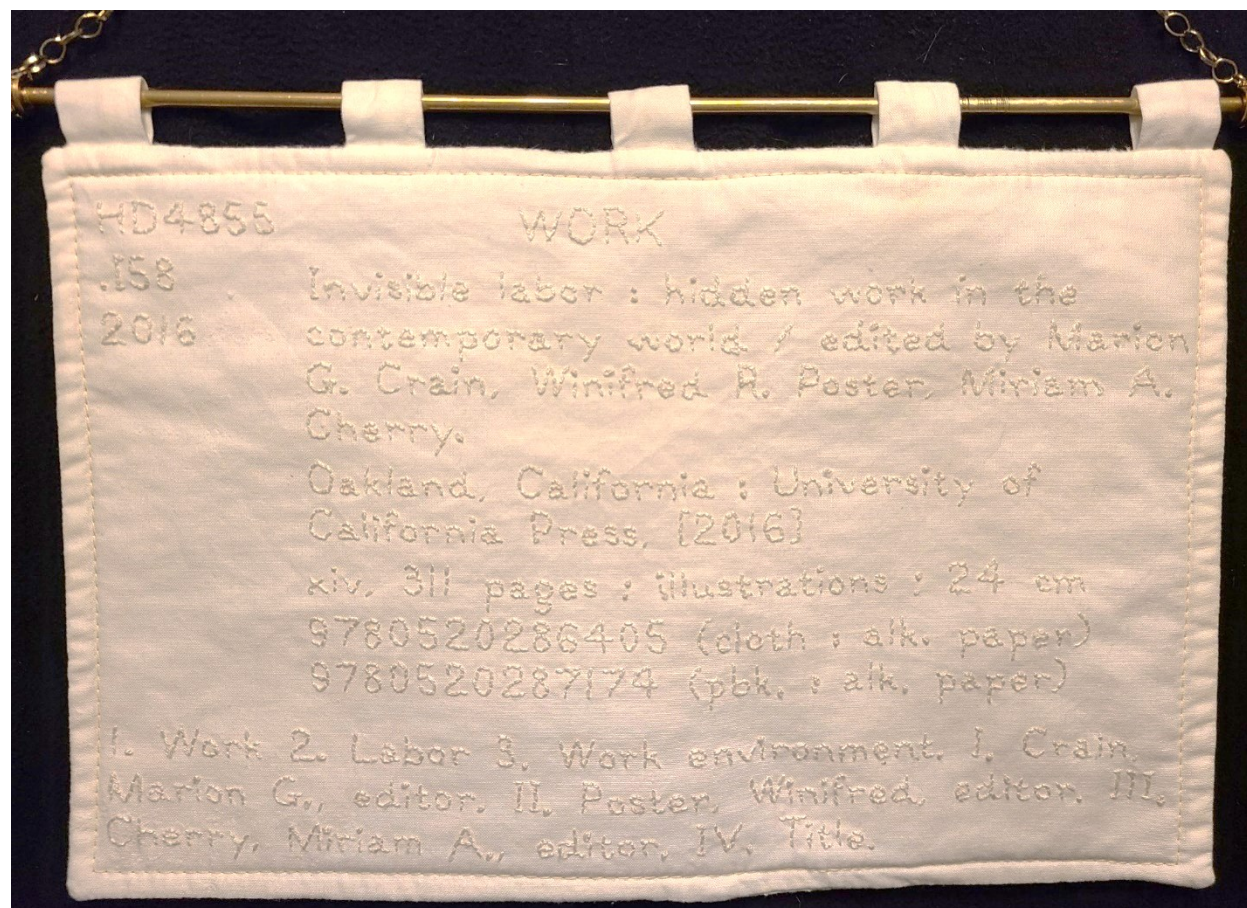 HD4855 WORK
.I58 Invisible labor : hidden work in the
2016 contemporary world / edited by Marion
G. Crain, Winifred R. Poster, Miriam A.
Cherry.
Oakland, California : University of
California Press, [2016]
xiv, 311 pages : illustrations ; 24 cm
9780520286405 (cloth : alk. paper)
9780520287174 (pbk. : alk. paper)
1. Work 2. Labor 3. Work environment. I. Crain,
Marion G., editor. II. Poster, Winifred, editor. III.
Cherry, Miriam A., editor. IV. Title.